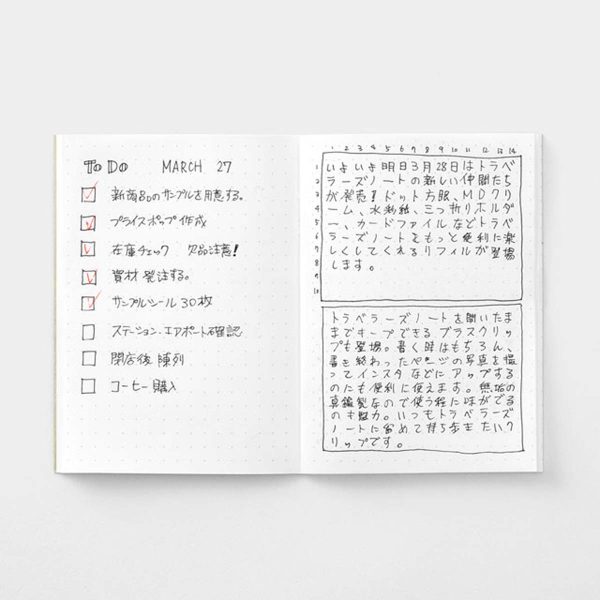 TO DO MARCH 27
新商品のサンプルを用意する。
プライスポップ作成
在庫チェック 欠品注意!
資材発注する。
サンプルシール 30枚
ステーション、エアポート確認
閉店後 陳列
コーヒー購入
1 2 3 4 5 6 7 8 9 10 11 12 13 14
1 いよいよ明日3月28日はトラベ
2 ラーズノートの新しい仲間たち
3 が発売!ドット方眼、MDクリ
4 ーム、水彩紙、三つ折りホルダ
5 ー、カードファイルなどトラベ
6 ラーズノートをもっと便利に楽
7 しくしてくれるリフィルが登場
8 します。
9
10
トラベラーズノートを開いたま
までキープできるブラスクリッ
プも登場。書く時はもちろん、
書き終わったページの写真を撮
ってインスタなどにアップする
のにも便利に使えます。無垢の
真鍮製なので使う程に味がでる
のも魅力。いつもトラベラーズ
ノートに留めて持ち歩きたいク
リップです。